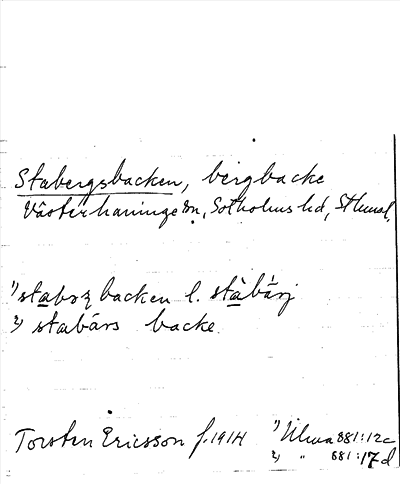 Stabergsbacken, bergbacke
Västerhaninge sn, Sotholms hd, Sthmsl.
1) stabȧrz backen l. stàbárj
2) stabárs backe
Torsten Ericsson f. 1914 1) Ulma 881:12c
2) " 881:17d